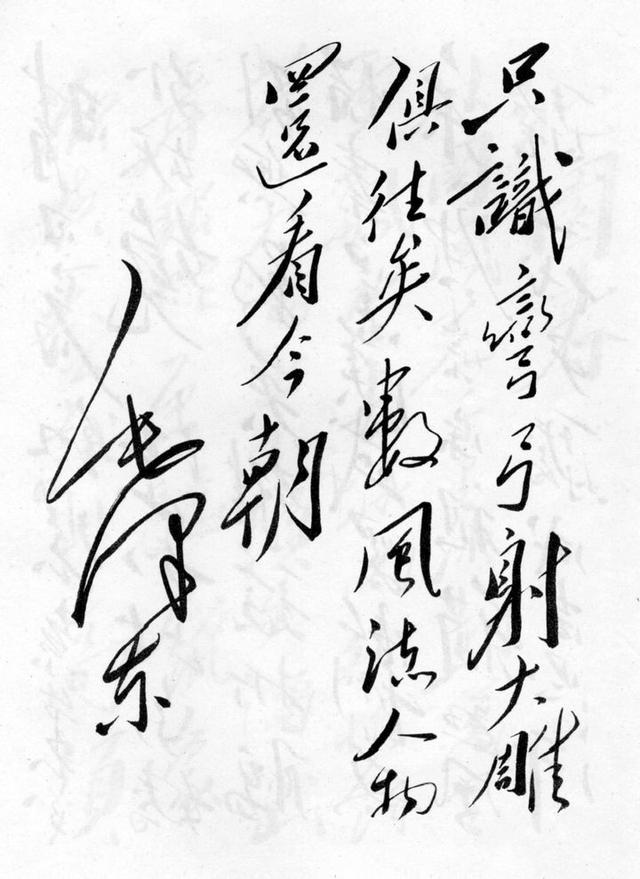 只識彎弓射大雕
俱往矣數風流人物
還看今朝
毛澤东